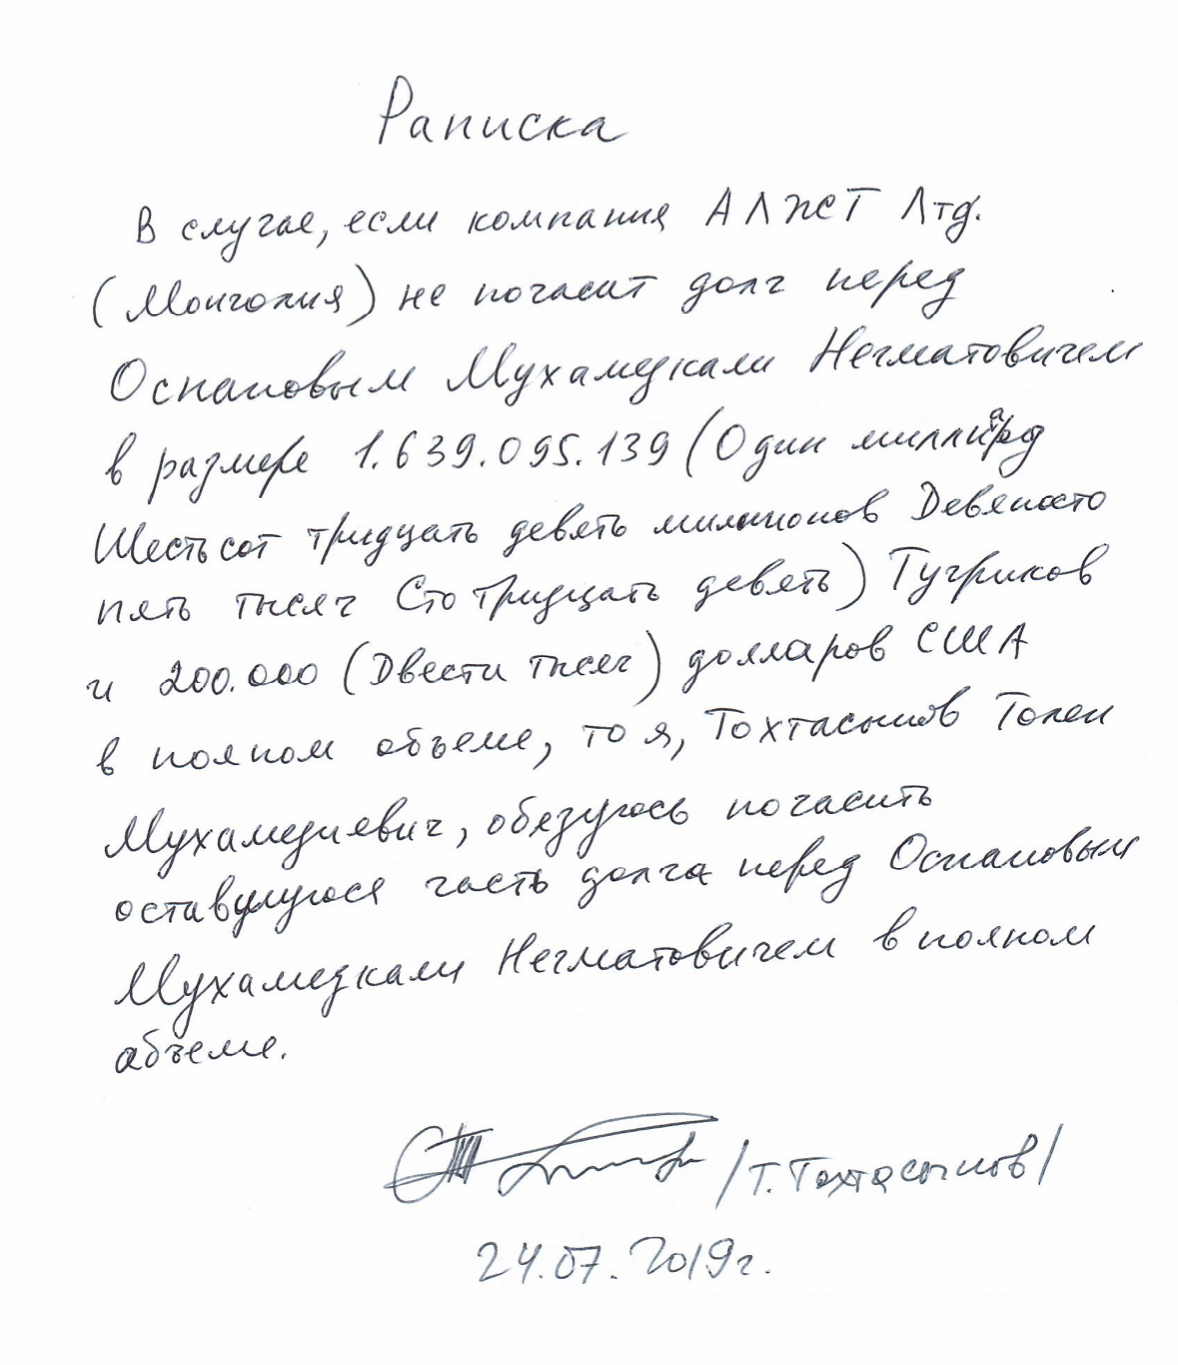 Раписка
В случае, если компания АЛЖСТ Лтд.
(Монголия) не погасит долг перед
Оспановым Мухамедкали Негматовичем
в размере 1.639.095.139 (Один миллиард
Шестьсот тридцать девять миллионов Девяносто
пять тысяч Сто тридцать девять) Тугриков
и 200.000 (Двести тысяч) долларов США
в полном объеме, то я, Тохтасынов Толен
Мухамедиевич, обязуюсь погасить
оставшуюся часть долга перед Оспановым
Мухамедкали Негматовичем в полном
абъеме.
/Т. Тохтасынов/
24.07.2019г.